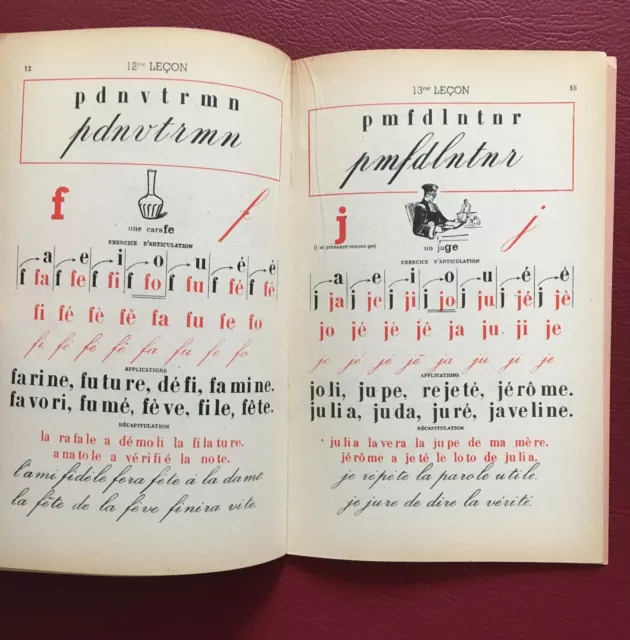 12
12me LEÇON
p d n v t r m n
pdnvtrmn
f
une carafe
f
EXERCICE D'ARTICULATION
a e i o u é ê
f fa f fe f fi f fo f fu f fé f fê
fi fé fè fê fa fu fe fo
fi fé fè fê fa fu fe fo
APPLICATIONS
farine, future, défi, famine.
favori, fumé, fève, file, fête.
RÉCAPITULATION
la rafale a démoli la filature.
anatole a vérifié la note.
l'ami fidèle fera fête à la dame.
la fête de la fève finira vite.
13me LEÇON
13
p m f d l n t n r
pmfdlntnr
j
(j se prononce comme ge)
un juge
j
EXERCICE D'ARTICULATION
a e i o u é è
j ja j je j ji j jo j ju j jé j jè
jo jé jè jê ja ju ji je
jo jé jè jê ja ju ji je
APPLICATIONS
joli, jupe, rejeté, jérôme.
julia, juda, juré, javeline.
RÉCAPITULATION
julia lavera la jupe de ma mère.
jérôme a jeté le loto de julia.
je répète la parole utile.
je jure de dire la vérité.